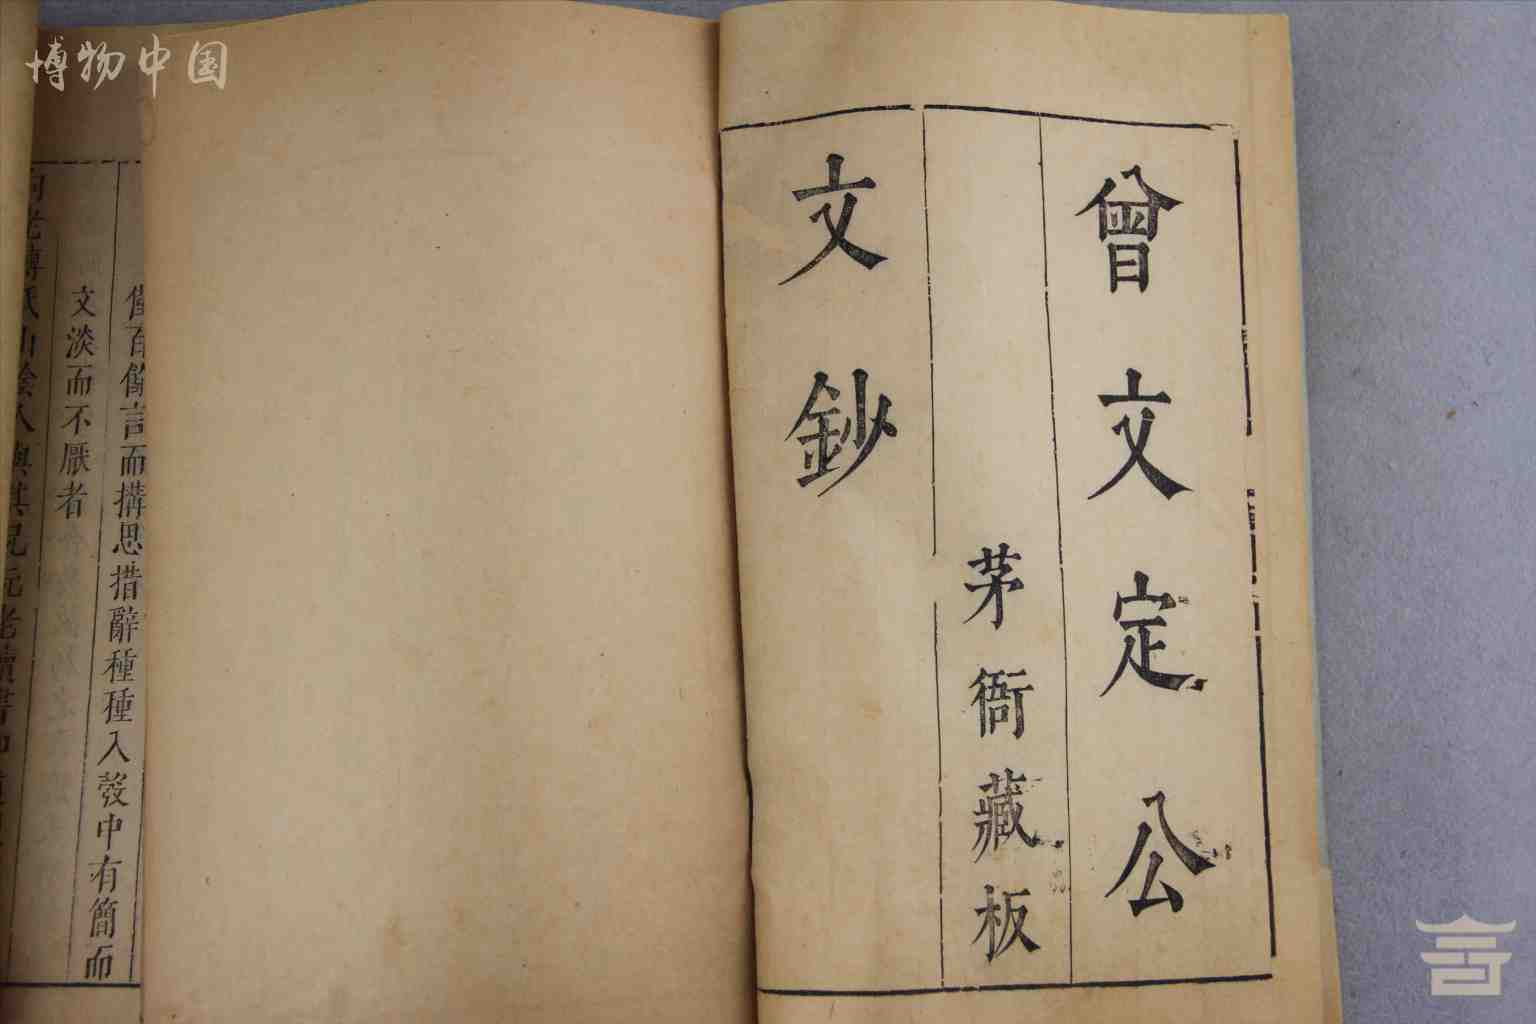 博物中国
曾文定公
茅衙藏板
文鈔
僅百餘言而搆思措辭種種入彀中有簡而
文淡而不厭者